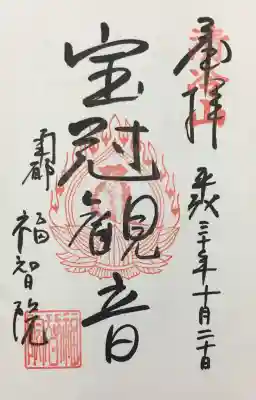 奉拝
平成三十年十月二十日
宝冠観音
南都
福智院